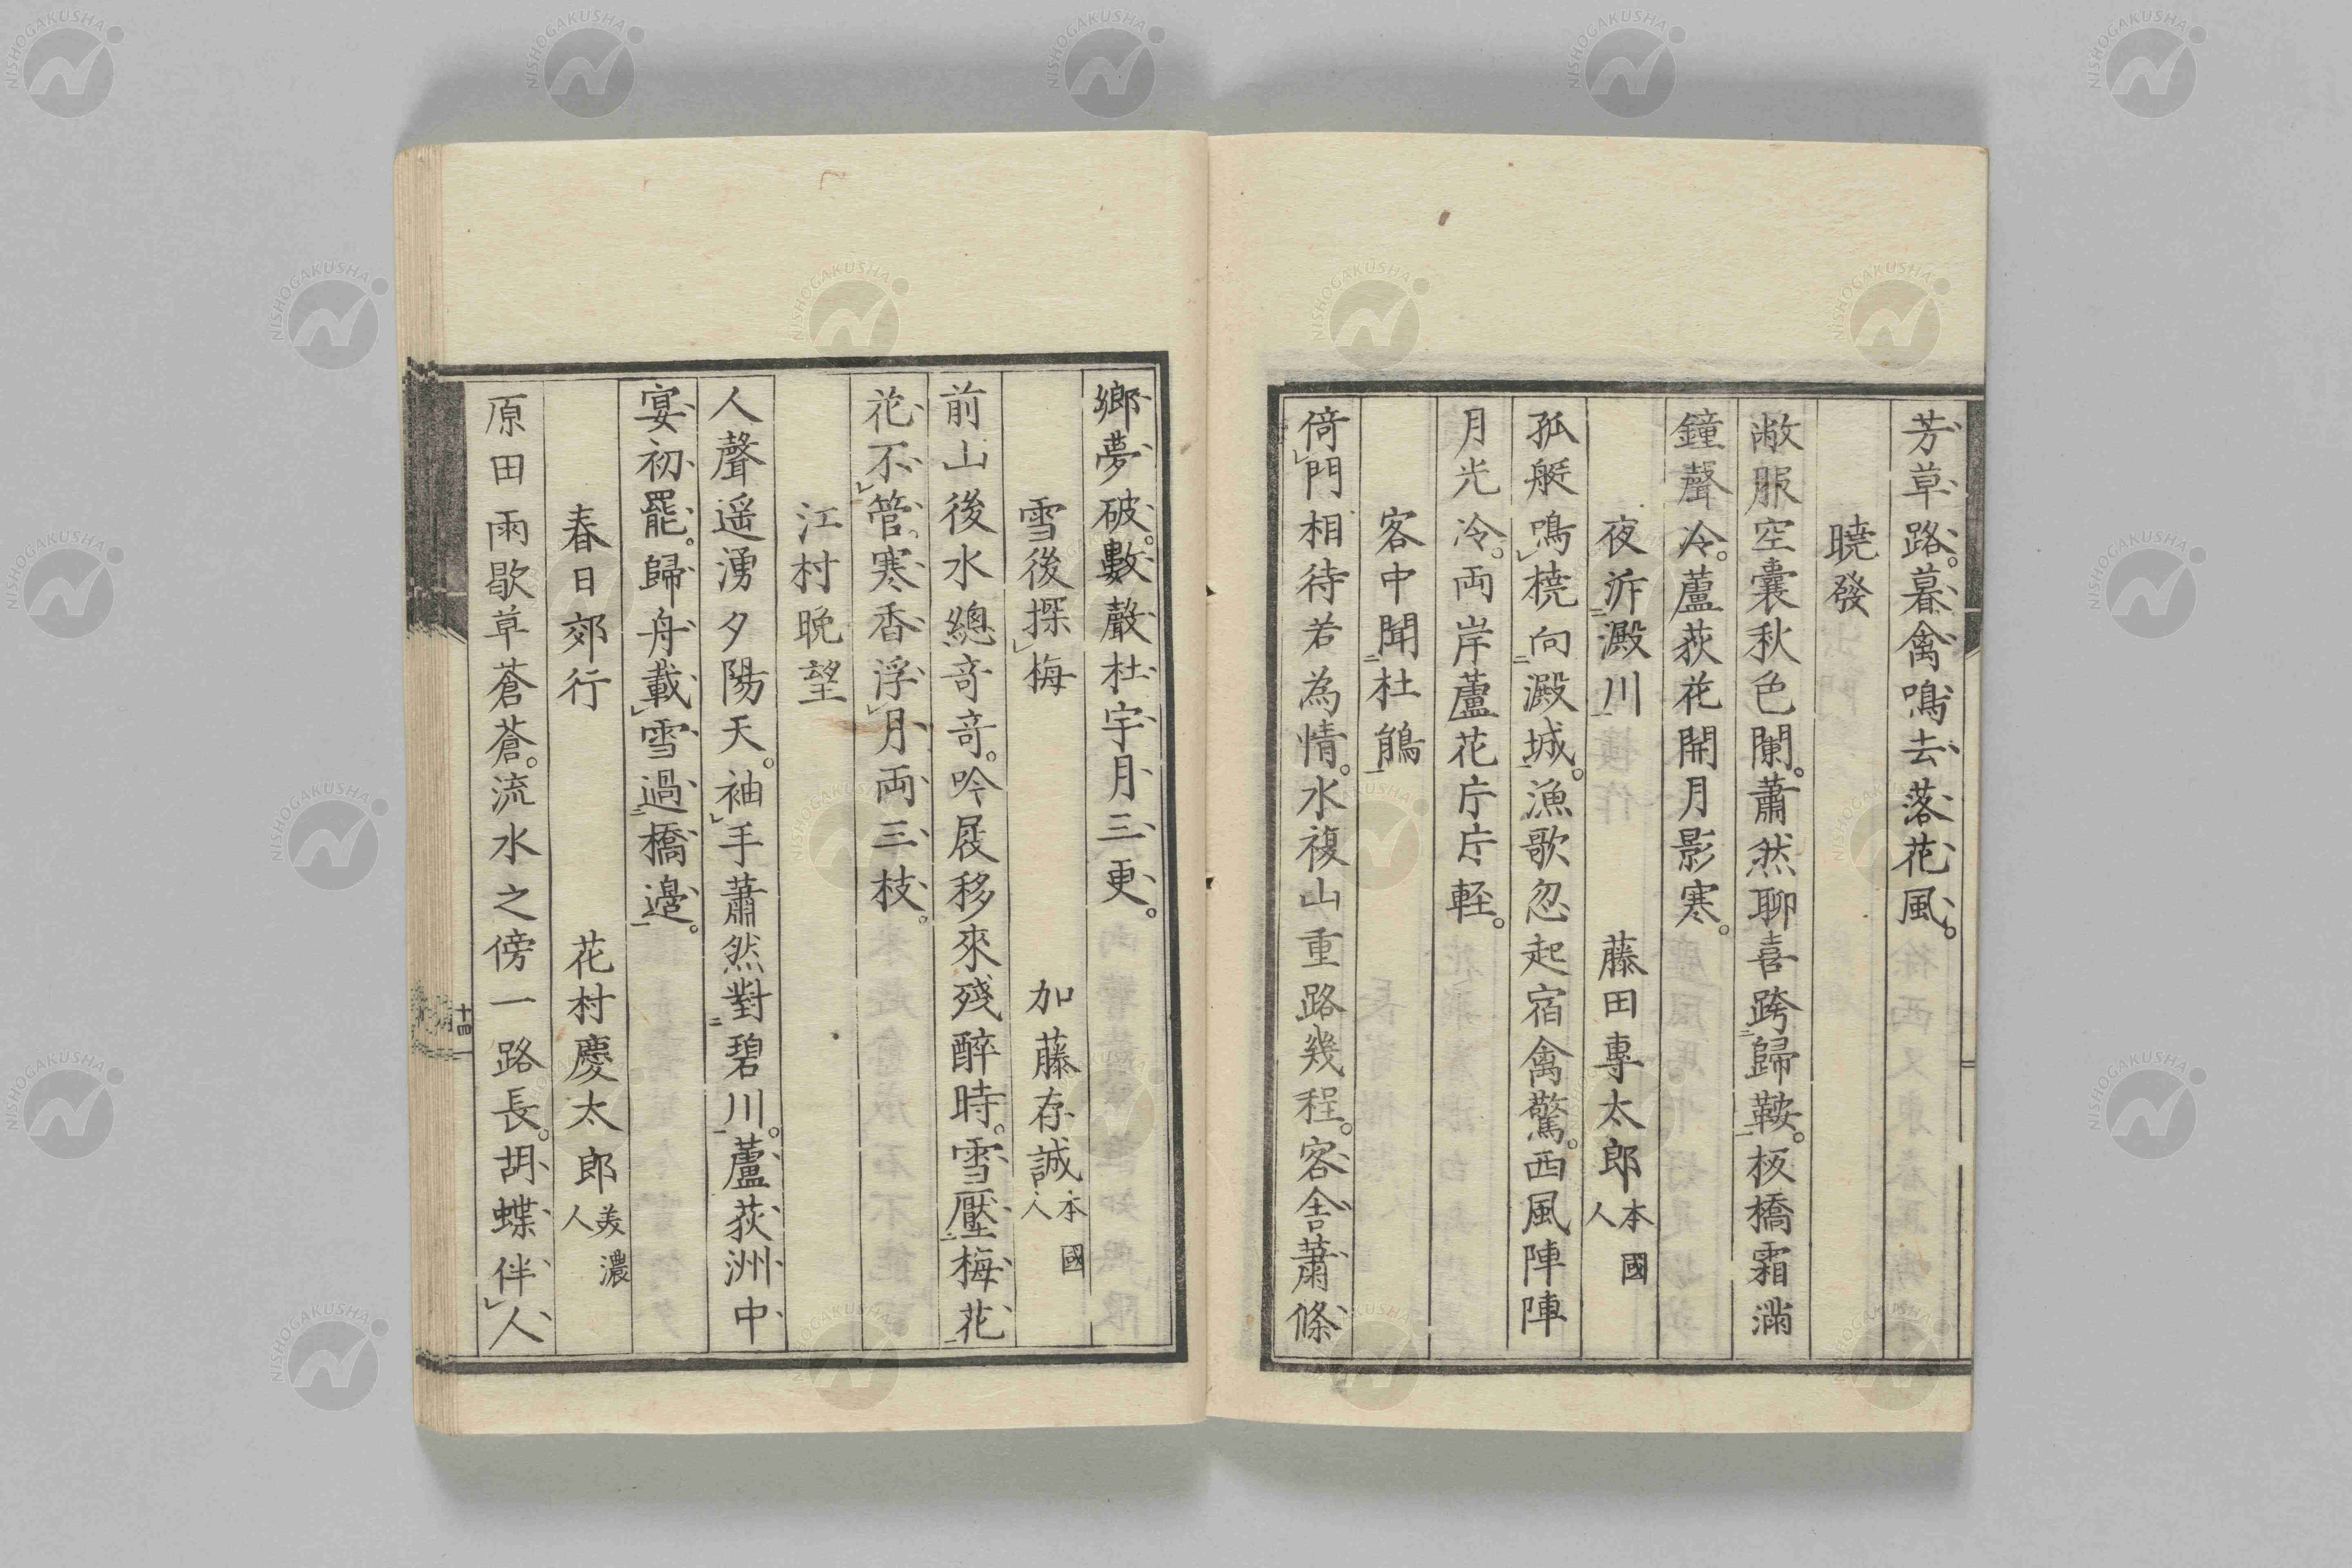 芳草路。暮禽鳴去落花風。
曉發
敝服空囊秋色闌。蕭然聊喜跨歸鞍。板橋霜滿
鐘聲冷。蘆荻花開月影寒。
夜泝澱川 藤田專太郎 本國人
孤艇鳴橈向澱城。漁歌忽起宿禽驚。西風陣陣
月光冷。両岸蘆花片片軽。
客中聞杜鵑
倚門相待若為情。水複山重路幾程。客舎蕭條
鄉夢破。數聲杜宇月三更。
雪後探梅 加藤存誠 本國人
前山後水總竒竒。吟屐移來殘醉時。雪壓梅花
花不管。寒香浮月両三枝。
江村晚望
人聲遥湧夕陽天。袖手蕭然對碧川。蘆荻洲中
宴初罷。歸舟載雪過橋邊。
春日郊行 花村慶太郎 美濃人
原田雨歇草蒼蒼。流水之傍一路長。胡蝶伴人
十四
NISHOGAKUSHA